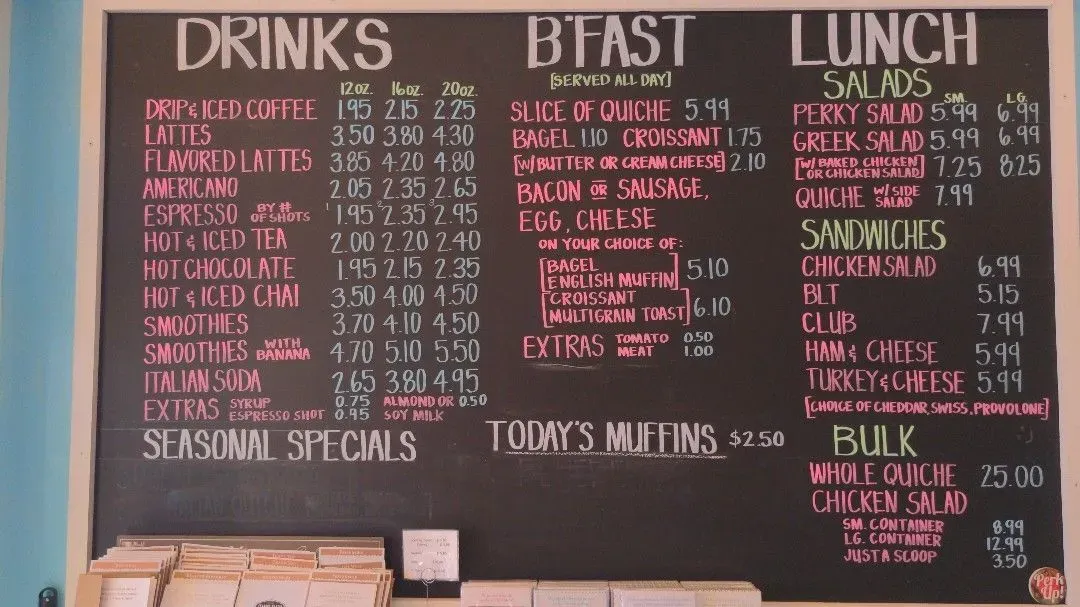 DRINKS
12oz. 16oz. 20oz.
DRIP & ICED COFFEE 1.95 2.15 2.25
LATTES 3.50 3.80 4.30
FLAVORED LATTES 3.85 4.20 4.80
AMERICANO 2.05 2.35 2.65
ESPRESSO BY # OF SHOTS 1 1.95 2 2.35 3 2.95
HOT & ICED TEA 2.00 2.20 2.40
HOT CHOCOLATE 1.95 2.15 2.35
HOT & ICED CHAI 3.50 4.00 4.50
SMOOTHIES 3.70 4.10 4.50
SMOOTHIES WITH BANANA 4.70 5.10 5.50
ITALIAN SODA 2.65 3.80 4.95
EXTRAS SYRUP 0.75 ALMOND OR 0.50
ESPRESSO SHOT 0.95 SOY MILK
SEASONAL SPECIALS
B'FAST
[SERVED ALL DAY]
SLICE OF QUICHE 5.99
BAGEL 1.10 CROISSANT 1.75
[W/ BUTTER OR CREAM CHEESE] 2.10
BACON OR SAUSAGE,
EGG, CHEESE
ON YOUR CHOICE OF:
[BAGEL
ENGLISH MUFFIN] 5.10
[CROISSANT
MULTIGRAIN TOAST] 6.10
EXTRAS TOMATO 0.50
MEAT 1.00
TODAY'S MUFFINS $2.50
LUNCH
SALADS
SM. LG.
PERKY SALAD 5.99 6.99
GREEK SALAD 5.99 6.99
[W/ BAKED CHICKEN
OR CHICKEN SALAD] 7.25 8.25
QUICHE W/ SIDE SALAD 7.99
SANDWICHES
CHICKEN SALAD 6.99
BLT 5.15
CLUB 7.99
HAM & CHEESE 5.99
TURKEY & CHEESE 5.99
[CHOICE OF CHEDDAR, SWISS, PROVOLONE]
BULK
WHOLE QUICHE 25.00
CHICKEN SALAD
SM. CONTAINER 8.99
LG. CONTAINER 12.99
JUST A SCOOP 3.50
Perk Up!